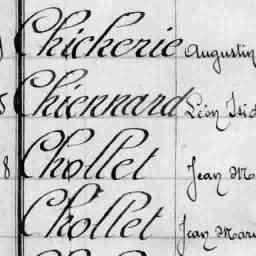 Chickerie Augustin
Chiennard Léon Isid
8 Chollet Jean M
Chollet Jean Mari